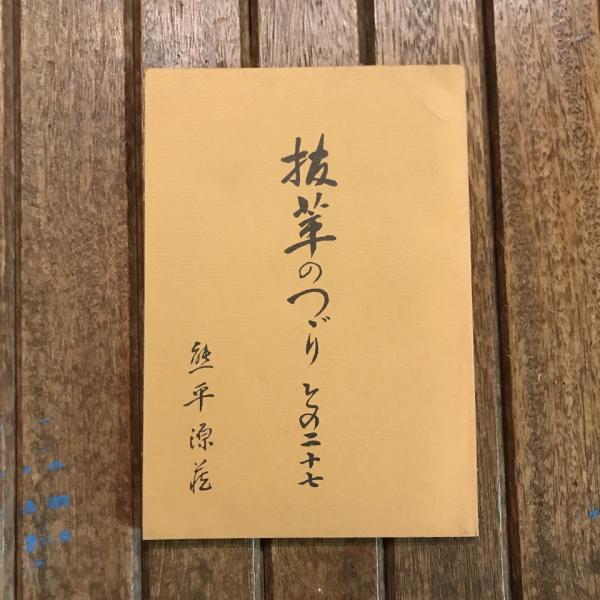 抜萃のつゞり その二十七
熊平源蔵